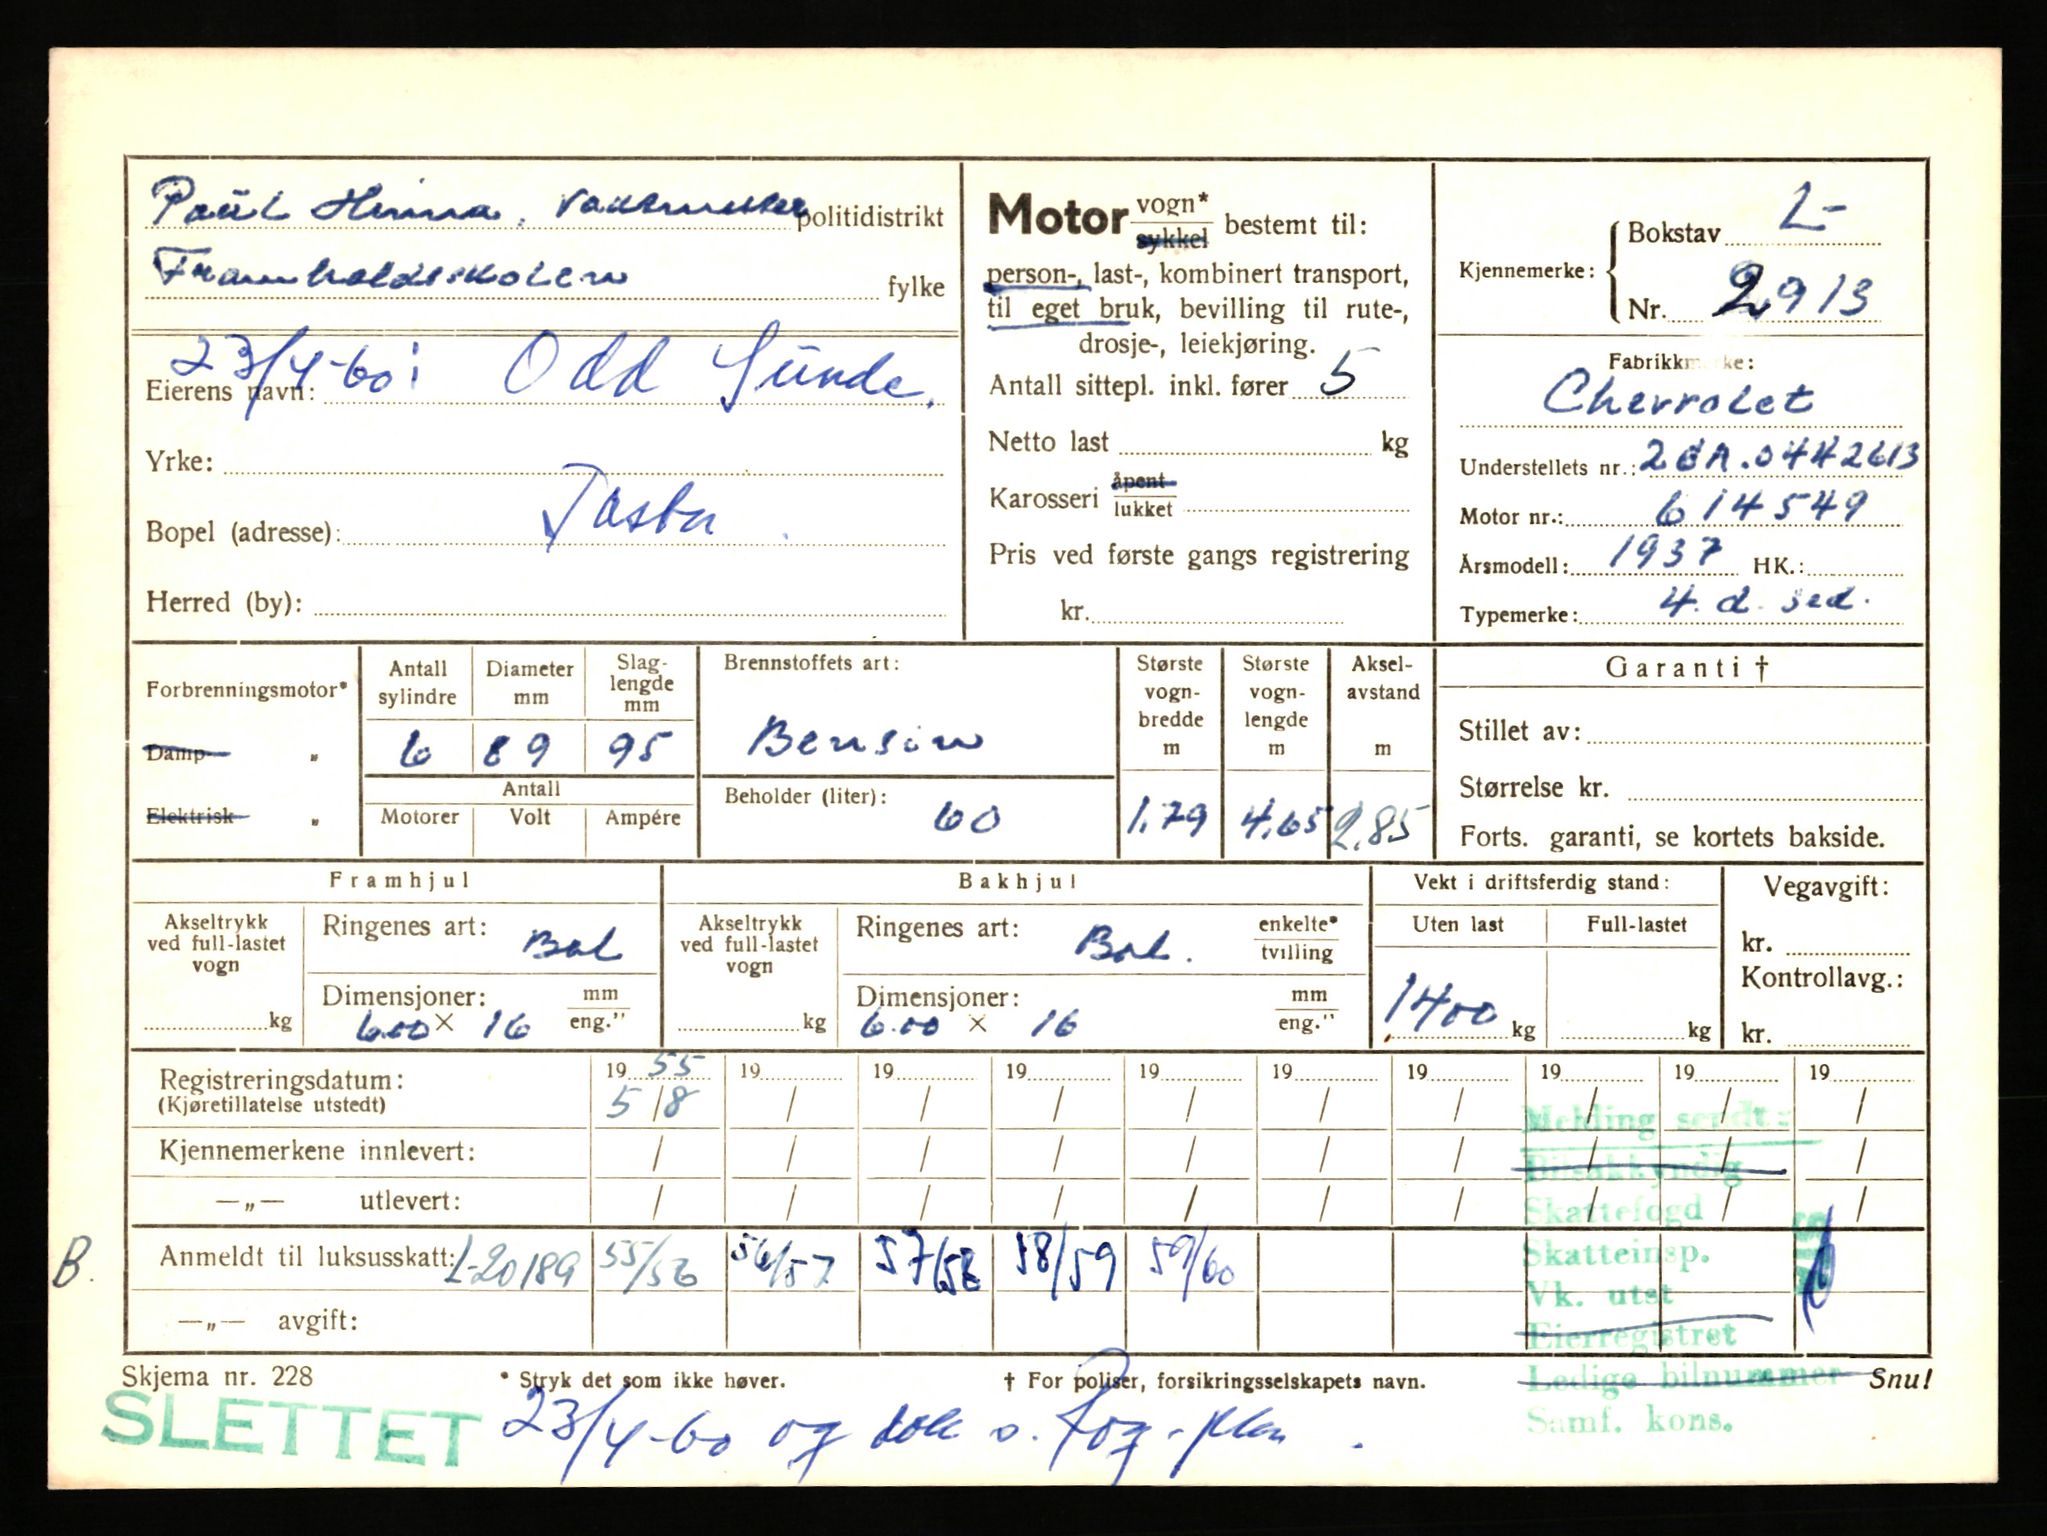 Paul Hinna, vaktmester politidistrikt
Framhaldsskolen fylke
23/4-60: Odd Sunde.
Eierens navn:
Yrke:
Bopel (adresse): Tasta
Herred (by):
Motor vogn* sykkel bestemt til:
person-, last-, kombinert transport,
til eget bruk, bevilling til rute-,
drosje-, leiekjøring.
Antall sittepl. inkl. fører 5
Netto last kg
Karosseri åpent lukket
Pris ved første gangs registrering
kr.
Kjennemerke: Bokstav L-
Nr. 2913
Fabrikkmerke:
Chevrolet
Understellets nr.:
Motor nr.: 614549
Årsmodell: 1937 HK.:
Typemerke: 4. d. sed.
Forbrenningsmotor*
Damp „
Elektrisk „
Antall sylindre
6
Diameter mm
89
Slag-
lengde
mm
95
Antall
Motorer Volt Ampére
Brennstoffets art:
Bensin
Beholder (liter): 60
Største
vogn-
bredde
m
1.79
Største
vogn-
lengde
m
4.65
Aksel-
avstand
m
2.85
Garanti †
Stillet av:
Størrelse kr.
Forts. garanti, se kortets bakside.
Framhjul
Akseltrykk
ved full-lastet
vogn
kg
Ringenes art: Bal
Dimensjoner: mm eng."
6.00 × 16
Bakhjul
Akseltrykk
ved full-lastet
vogn
kg
Ringenes art: Bal. enkelte* tvilling
Dimensjoner: mm eng."
6.00 × 16
Vekt i driftsferdig stand:
Uten last Full-lastet
1400 kg kg
Vegavgift:
kr.
Kontrollavg.:
kr.
Registreringsdatum: 19 55 19 19 19 19 19 19 19 19 19
(Kjøretillatelse utstedt) 5/8 / / / / / / / / /
Kjennemerkene innlevert: / / / / / / / / / /
—„— utlevert: / / / / / / / / / /
B. Anmeldt til luksusskatt: L-20189 55/56 56/57 57/58 58/59 59/60
—„— avgift:
Melding sendt:
Bilsakkyndig
Skattefogd
Skatteinsp.
Vk. utst
Eierregistret
Ledige bilnummer
Samf. kons.
Skjema nr. 228 * Stryk det som ikke høver. † For poliser, forsikringsselskapets navn. Snu!
SLETTET 23/4-60 og